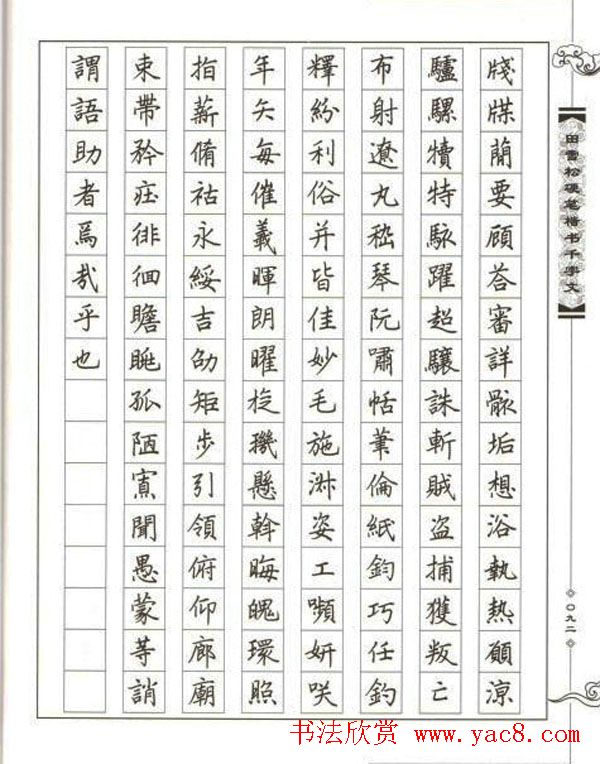 田雪松硬笔楷书千字文
牋牒蕳要顧荅審詳骸垢想浴執熱願涼
驢騾犢特駭躍超驤誅斬賊盗捕獲叛亡
布射遼丸嵇琴阮嘯恬筆倫紙鈞巧任釣
釋紛利俗并皆佳妙毛施淑姿工嚬妍咲
年矢每催羲暉朗曜旋璣懸斡晦魄環照
指薪脩祜永綏吉劭矩步引領俯仰廊廟
束帶矜莊徘徊瞻眺孤陋寡聞愚蒙等誚
謂語助者焉哉乎也
〇九二
书法欣赏 www.yac8.com